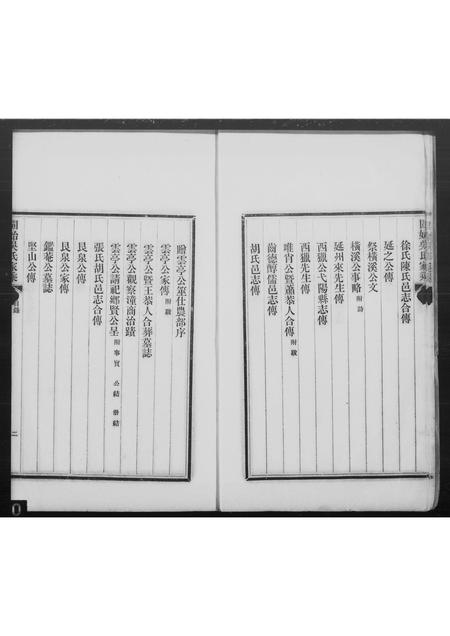 徐氏陳氏邑志合傳
延之公傳
祭橫溪公文
橫溪公事略 附詩
延州來先生傳
西獵公弋陽縣志傳
西獵先生傳
唯宵公暨蕭恭人合傳 附跋
齒德醇儒邑志傳
胡氏邑志傳
贈雲亭公筮仕農部序
雲亭公家傳 附跋
雲亭公暨王恭人合葬墓誌
雲亭公觀察潼商治蹟
雲亭公請祀鄉賢公呈 附事實 公結 册結
張氏胡氏邑志合傳
艮泉公傳
艮泉公家傳
鑑菴公墓誌
堅山公傳
固始吳氏家
二